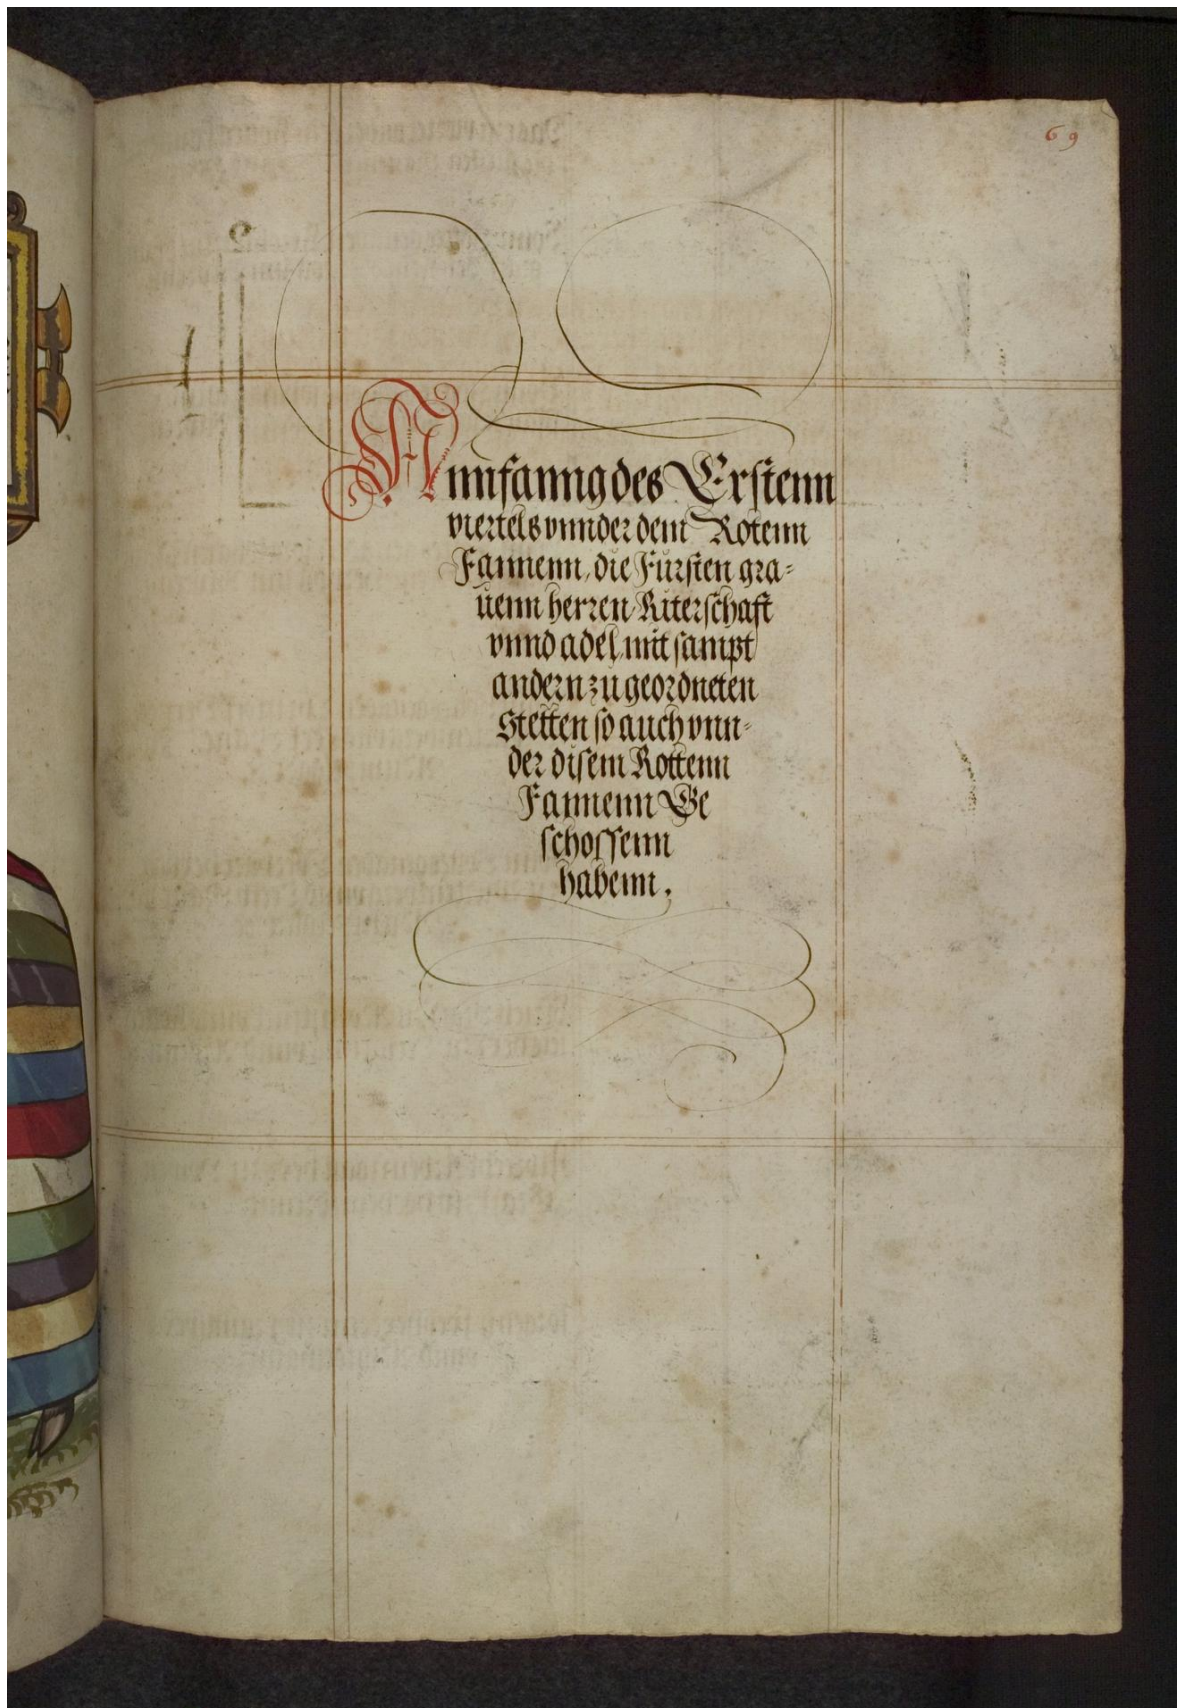 69
Annfanng des Erstenn
viertels vnnder dem Rotenn
Fannenn, die Fürsten gra=
uenn herren Riterschaft
vnnd adel, mit sampt
andern zu geordneten
Stetten so auch vnn=
der disem Rottenn
Fannenn Ge
schossenn
habenn.